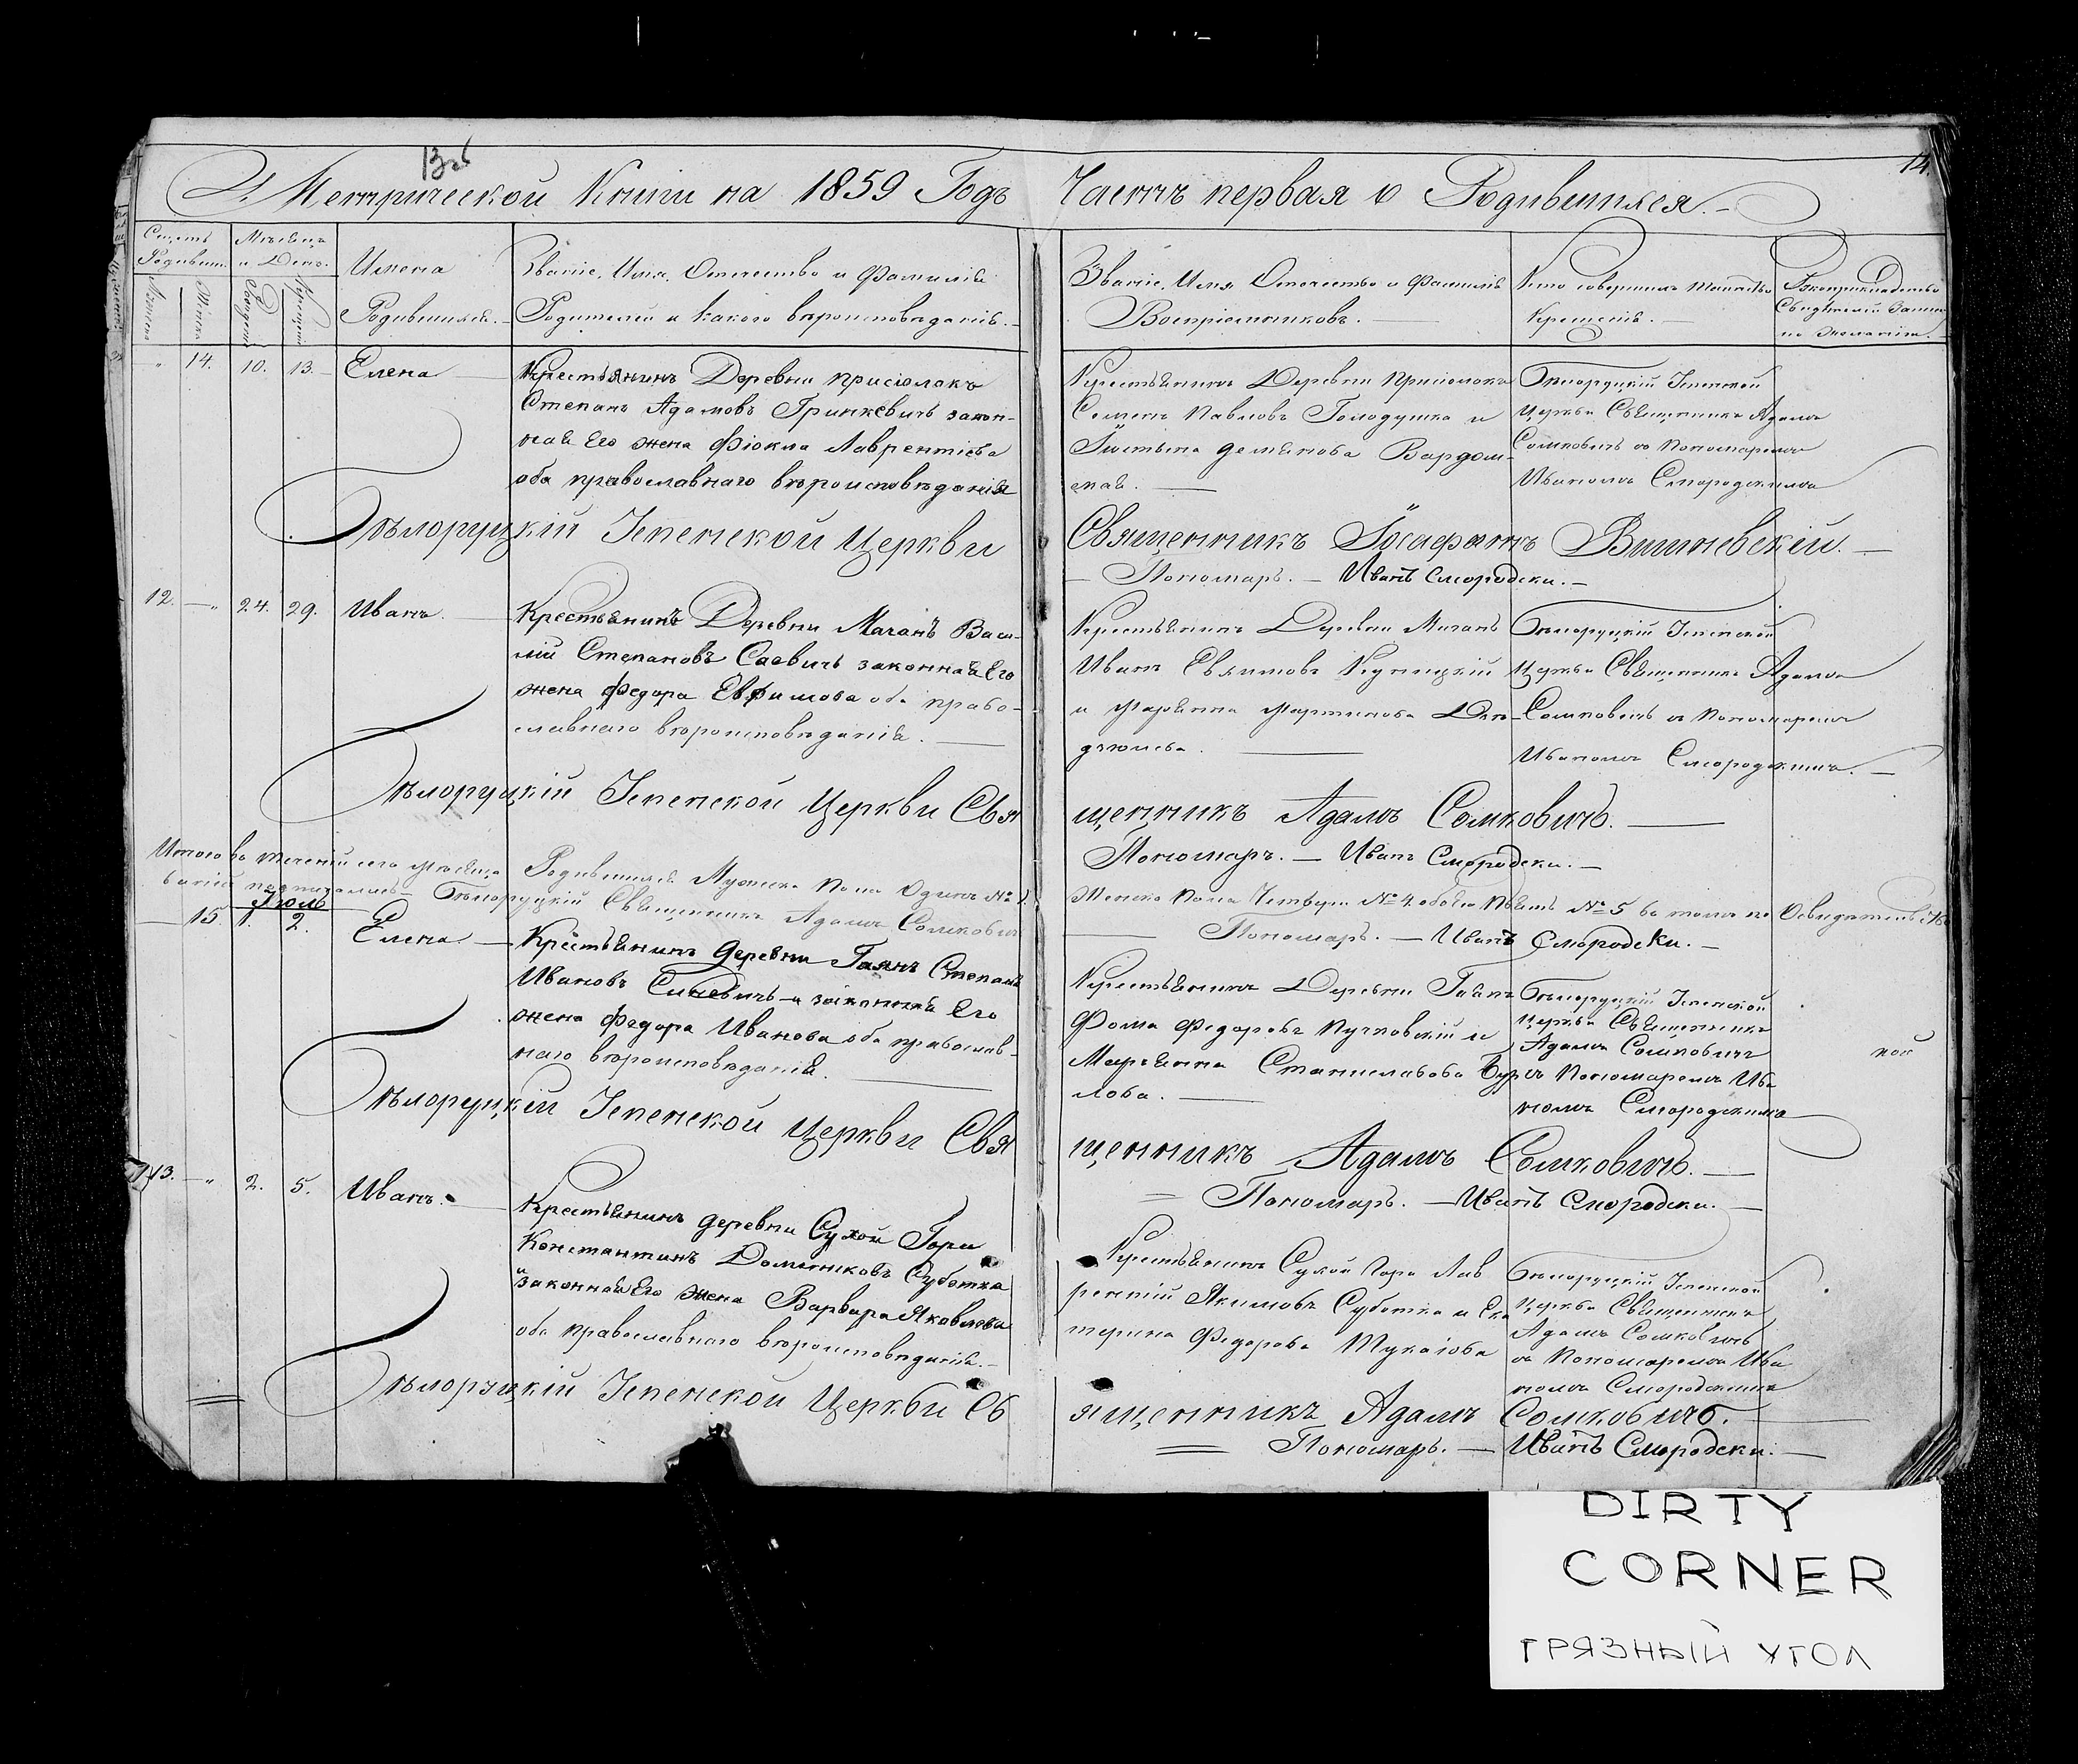 13об
14.
Метрической Книги на 1859 Годъ Часть первая о Родившихся.
Счетъ Родивши.
Мѣсяцъ и День.
Имена Родившихся.
Званіе, Имя, Отечество и Фамилія
Родителей и какого вѣроисповѣданія.
Званіе, Имя Отечество и Фамилія
Воспріемниковъ.
Кто совершалъ таинство
Крещенія.
14. 10. 13. Елена
Крестьянинъ Деревни Присіолокъ
Степанъ Адамовъ Гринкевичъ закон-
ная Его жена Фіокла Лаврентіева
оба православнаго вѣроисповѣданія
Крестьянинъ Деревни Присіолокъ
Семенъ Павловъ Голодушка и
Демянова
ская.
Бѣлоруцкій Іспенской
Церкви Священникъ Адамъ
Сомковичъ съ Пономаремъ
Иваномъ Смородскимъ
Бѣлоруцкій Іспенской Церкви Священникъ Іосафатъ Вишневскій.
Пономарь. — Иванъ Смородски. —
12. 24. 29. Иванъ.
Крестьянинъ Деревни Мачанъ Васи-
лій Степановъ Саевичъ законная Его
жена Федора Евфимова оба право-
славнаго вѣроисповѣданія.
Крестьянинъ Деревни Мачанъ
Иванъ Евфимовъ
и Марьянна Мартинова
Бѣлоруцкій Іспенской
Церкви Священникъ Адамъ
Сомковичъ съ Пономаремъ
Иваномъ Смородскимъ. —
Бѣлоруцкій Іспенской Церкви Священникъ Адамъ Сомковичъ.
Пономарь. — Иванъ Смородски. —
Итого во теченіи сего месяца Родившихся Мужска Пола Одинъ №1
Женска Пола Четверо №4. обоего Пять №5 во томъ по Освидетельство
ваніи подписались — Бѣлоруцкій Священникъ Адамъ Сомковичъ
Пономарь. — Иванъ Смородски. —
Іюль
15. 1. 2. Елена
Крестьянинъ Деревни Гаянъ Степанъ
Ивановъ Синевичъ и законная Его
жена Федора Иванова оба православ-
наго вѣроисповѣданія.
Крестьянинъ Деревни Гаянъ
Фома Федоровъ Кучковскій и
Марьянна Станиславова Бур-
лова.
Бѣлоруцкій Іспенской
Церкви Священникъ
Адамъ Сомковичъ
съ Пономаремъ Ива
номъ Смородскимъ
Бѣлоруцкій Іспенской Церкви Священникъ Адамъ Сомковичъ.
Пономарь. — Иванъ Смородски. —
13. 2. 5. Иванъ.
Крестьянинъ деревни Сухой Гори
Константинъ Доминиковъ Суботка
и законная Его жена Варвара Яковлева
оба православнаго вѣроисповѣданія. —
Крестьянинъ Сухой Гори Лав
рентій Якимовъ Суботка и Ека
терина Федорова Тукаіова
Бѣлоруцкій Іспенской
Церкви Священникъ
Адамъ Сомковичъ
съ Пономаремъ Ива
номъ Смородскимъ
Бѣлоруцкій Іспенской Церкви Священникъ Адамъ Сомковичъ.
Пономарь. — Иванъ Смородски. —
DIRTY
CORNER
ГРЯЗНЫЙ УГОЛ